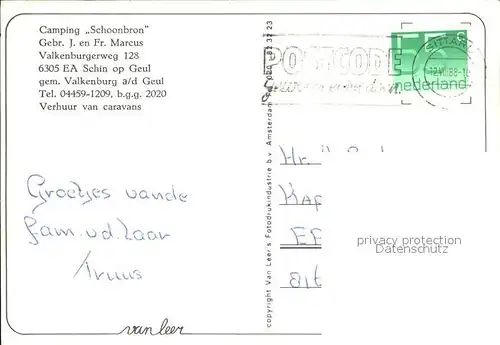 Camping „Schoonbron”
Gebr. J. en Fr. Marcus
Valkenburgerweg 128
6305 EA Schin op Geul
gem. Valkenburg a/d Geul
Tel. 04459-1209, b.g.g. 2020
Verhuur van caravans
POSTCODE
SITTARD
12.VII.88
nederland
Groetjes vande
fam. v.d. Laar
Truus
copyright Van Leer's Fotodrukindustrie b.v. Amsterdam
Hr.
Kap
privacy protection
Datenschutz
van leer